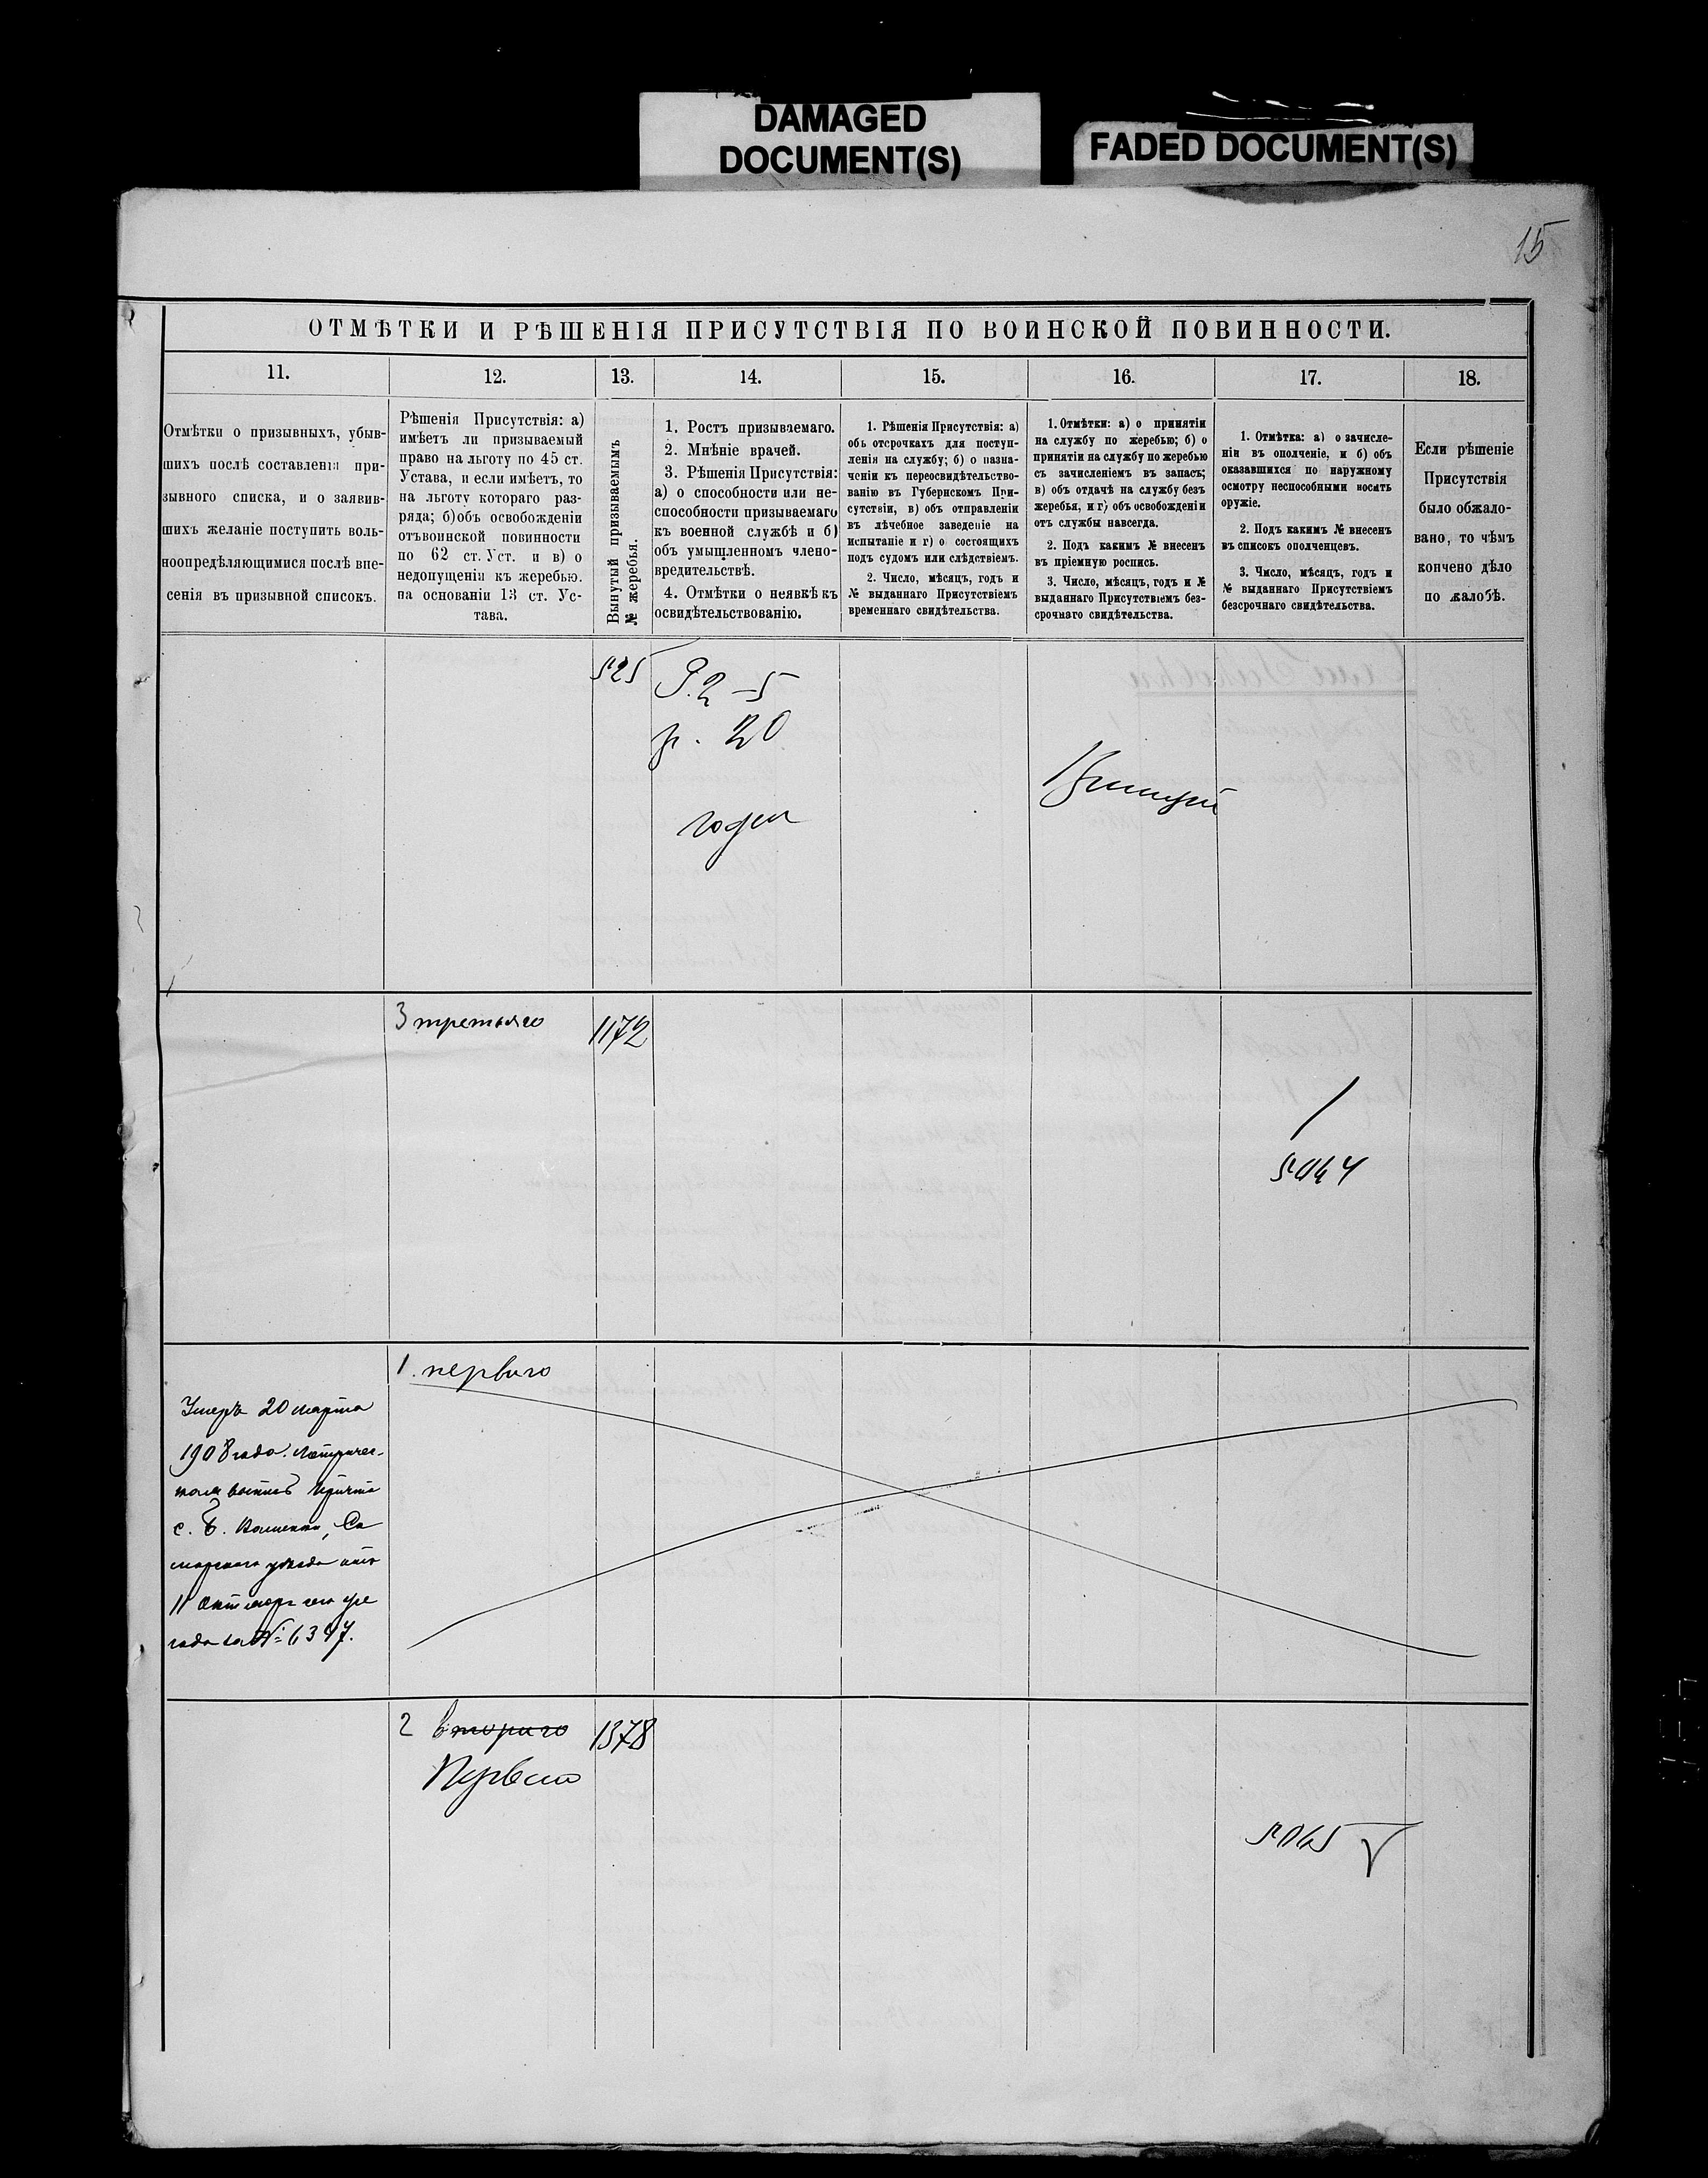 DAMAGED
DOCUMENT(S)
FADED DOCUMENT(S)
15
ОТМѢТКИ И РѢШЕНІЯ ПРИСУТСТВІЯ ПО ВОИНСКОЙ ПОВИННОСТИ.
11.
12.
13.
14.
15.
16.
17.
18.
Отмѣтки о призывныхъ, убыв-
шихъ послѣ составленія при-
зывного списка, и о заявив-
шихъ желаніе поступить воль-
ноопредѣляющимися послѣ вне-
сенія въ призывной списокъ.
Рѣшенія Присутствія: а)
имѣетъ ли призываемый
право на льготу по 45 ст.
Устава, и если имѣетъ, то
на льготу котораго раз-
ряда; б)объ освобожденіи
отъ воинской повинности
по 62 ст. Уст. и в) о
недопущеніи къ жеребью.
на основаніи 13 ст. Ус-
тава.
Вынутый призываемымъ
№ жеребья.
1. Ростъ призываемаго.
2. Мнѣніе врачей.
3. Рѣшенія Присутствія:
а) о способности или не-
способности призываемаго
къ военной службѣ и б)
объ умышленномъ члено-
вредительствѣ.
4. Отмѣтки о неявкѣ къ
освидѣтельствованію.
1. Рѣшенія Присутствія: а)
объ отсрочкахъ для поступ-
ленія на службу; б) о назна-
ченіи къ переосвидѣтельство-
ванію въ Губернскомъ При-
сутствіи, в) объ отправленіи
въ лѣчебное заведеніе на
испытаніе и г) о состоящихъ
подъ судомъ или слѣдствіемъ.
2. Число, мѣсяцъ, годъ и
№ выданнаго Присутствіемъ
временнаго свидѣтельства.
1. Отмѣтки: а) о принятіи
на службу по жеребью; б) о
принятіи на службу по жеребью
съ зачисленіемъ въ запасъ;
в) объ отдачѣ на службу безъ
жеребья, и г) объ освобожденіи
отъ службы навсегда.
2. Подъ какимъ № внесенъ
въ пріемную роспись.
3. Число, мѣсяцъ, годъ и №
выданнаго Присутствіемъ без-
срочнаго свидѣтельства.
1. Отмѣтка: а) о зачисле-
ніи въ ополченіе, и б) объ
оказавшихся по наружному
осмотру неспособными носить
оружіе.
2. Подъ какимъ № внесенъ
въ списокъ ополченцевъ.
3. Число, мѣсяцъ, годъ и
№ выданнаго Присутствіемъ
безсрочнаго свидѣтельства.
Если рѣшеніе
Присутствія
было обжало-
вано, то чѣмъ
кончено дѣло
по жалобѣ.
525
Р. 2 – 5
г. 20
годен
Принят
3 третьяго
1172
5064
1. перваго
Умеръ 20 марта
1908 года. Метричес-
кая выпись причта
с. Б. Каменки, Са
марского уѣзда отъ
11 Октября
года за № 6347.
2 втораго
1378
Перваго
5065